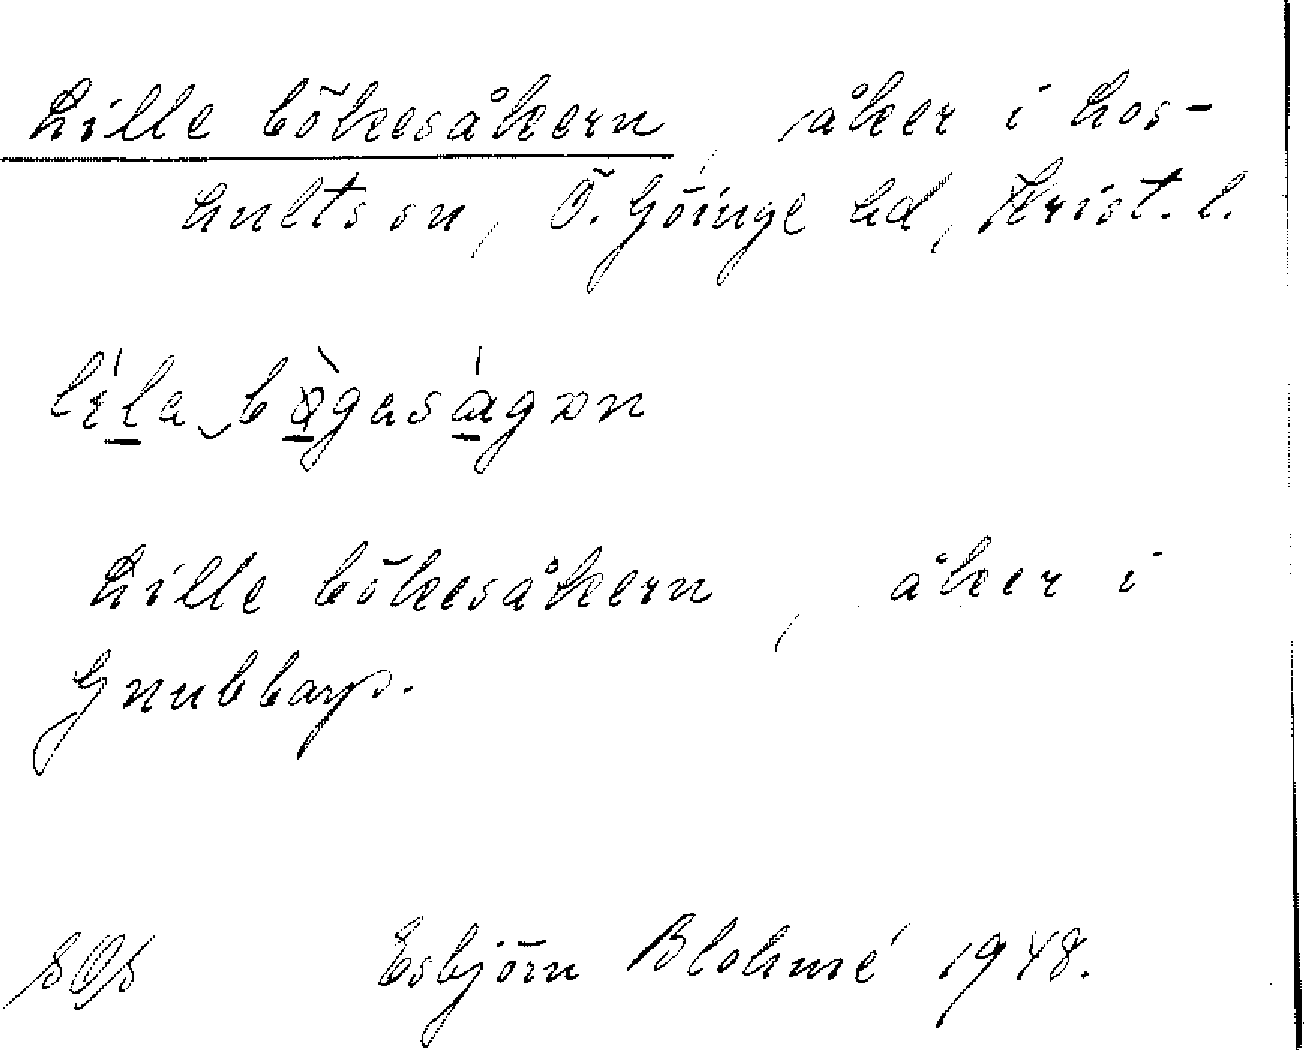 Lille bökesåkern, åker i Los-
hults sn, Ö. Göinge hd, Krist. l.
Lille bökesåkern, åker i
Gnubbarp.
Esbjörn Blohmé 1948.